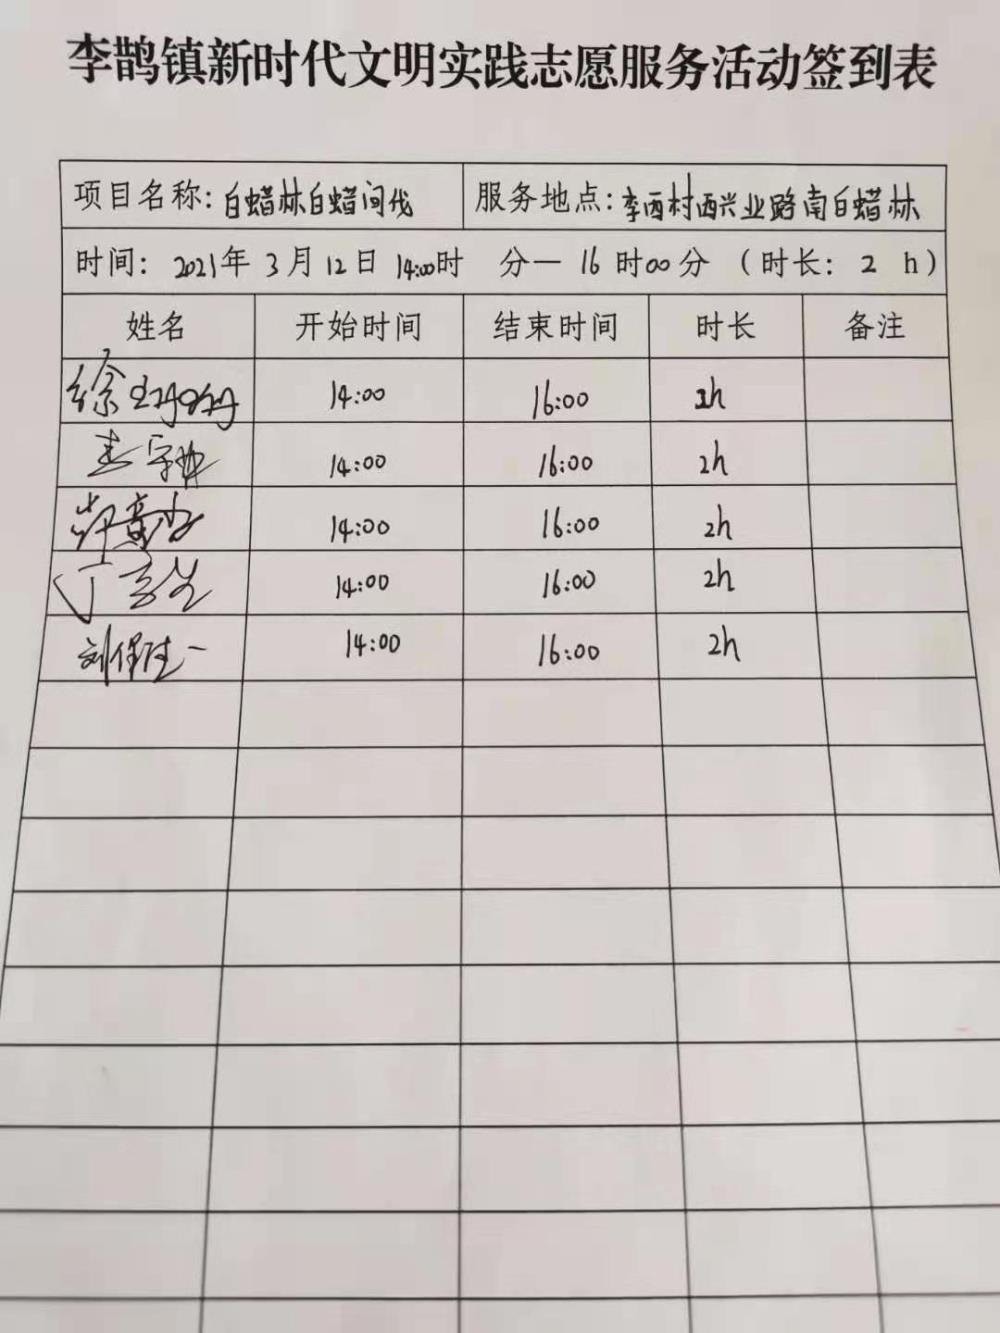 李鹊镇新时代文明实践志愿服务活动签到表
项目名称：白蜡林白蜡间伐 服务地点：李西村西兴业路南白蜡林
时间：2021年 3月 12日 14:00时 分— 16时00分 （时长：2 h）
姓名 开始时间 结束时间 时长 备注
徐 14:00 16:00 2h
14:00 16:00 2h
14:00 16:00 2h
丁 14:00 16:00 2h
刘 14:00 16:00 2h